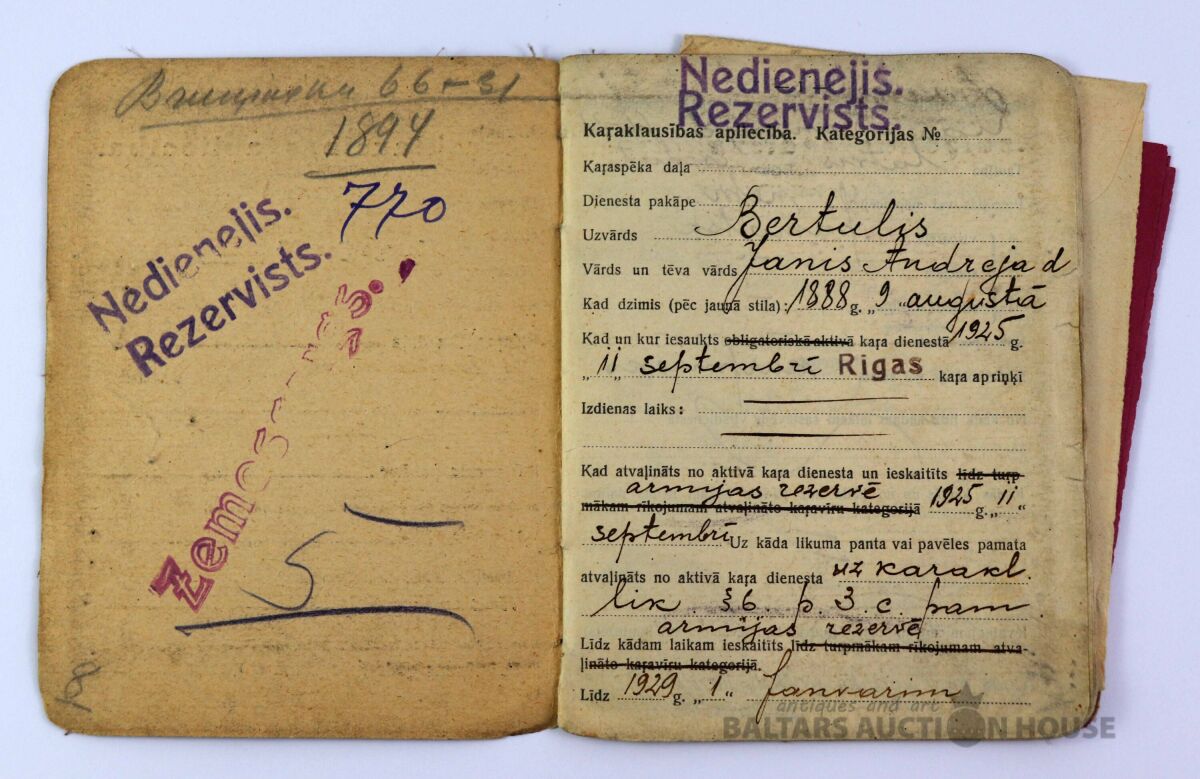 66-31
1894
770
Nedienejis.
Rezervists.
5
Nedienejis.
Rezervists.
Kaŗaklausības apliecība. Kategorijas №
Kaŗaspēka daļa
Dienesta pakāpe
Uzvārds Bertulis
Vārds un tēva vārds Janis Andreja d
Kad dzimis (pēc jaunā stila): 1888 g. „ 9 „ augustā
Kad un kur iesaukts obligatoriskā aktīvā kaŗa dienestā 1925 g.
„ 11 “ septembrī Rigas kaŗa apriņķī
Izdienas laiks:
Kad atvaļināts no aktīvā kaŗa dienesta un ieskaitīts līdz turp-
armijas rezervē
mākam rīkojumam atvaļināto kaŗavīru kategorijā 1925 g. „ 11 “
septembrī Uz kāda likuma panta vai pavēles pamata
atvaļināts no aktīvā kaŗa dienesta uz karakl.
lik §6. p. 3. c. pam
armijas rezervē
Līdz kādam laikam ieskaitīts līdz turpmākam rīkojumam atva-
ļināto kaŗavīru kategorijā.
Līdz 1929 g. „ 1 “ Janvarim
antiques and art
BALTARS AUCTION HOUSE